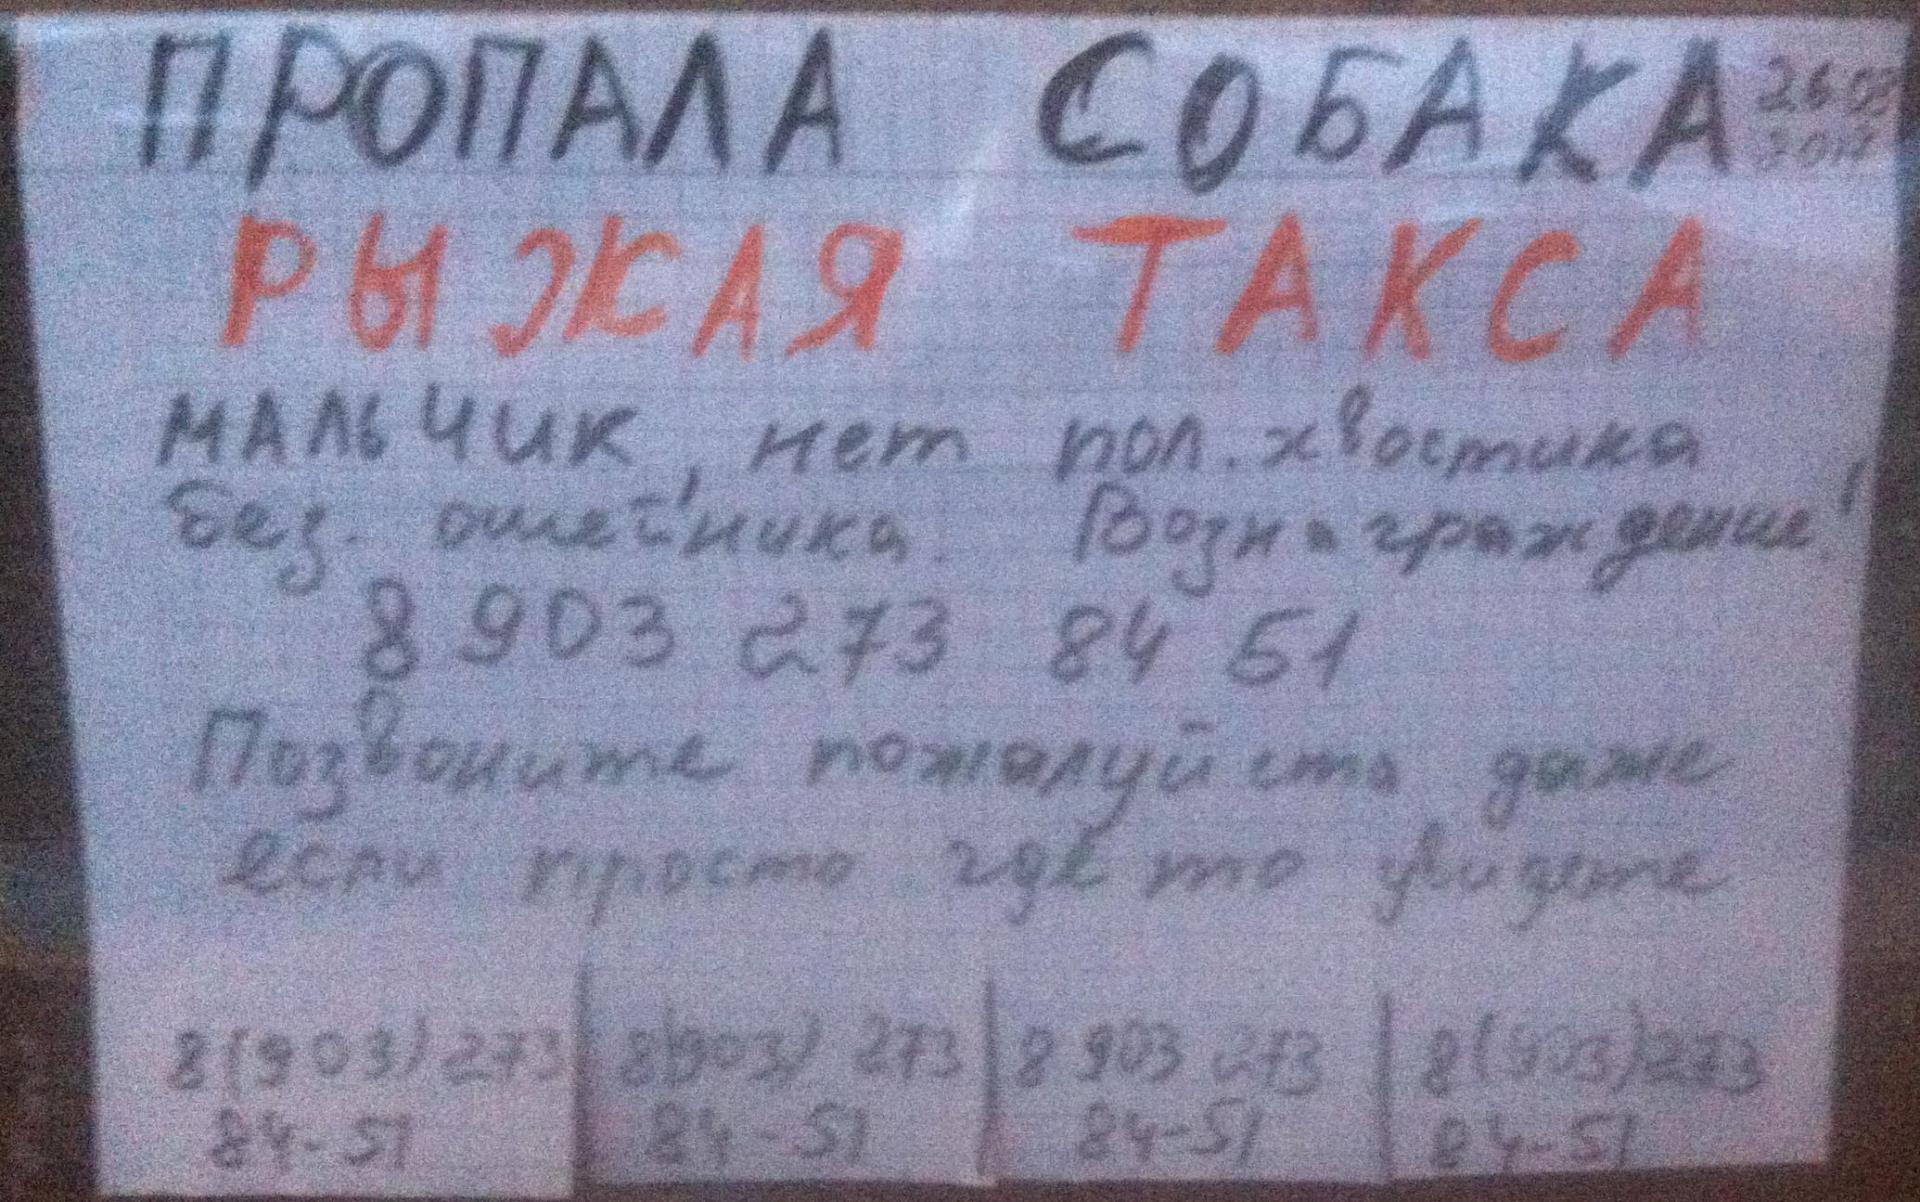 ПРОПАЛА СОБАКА
РЫЖАЯ ТАКСА
МАЛЬЧИК, нет пол. хвостика
без. ошейника. Вознаграждение!
8 903 273 84 51
Позвоните пожалуйста даже
если просто где то увидете
8(903)273
84-51
8(903) 273
84-51
8 903 273
84-51
8(903)273
84-51